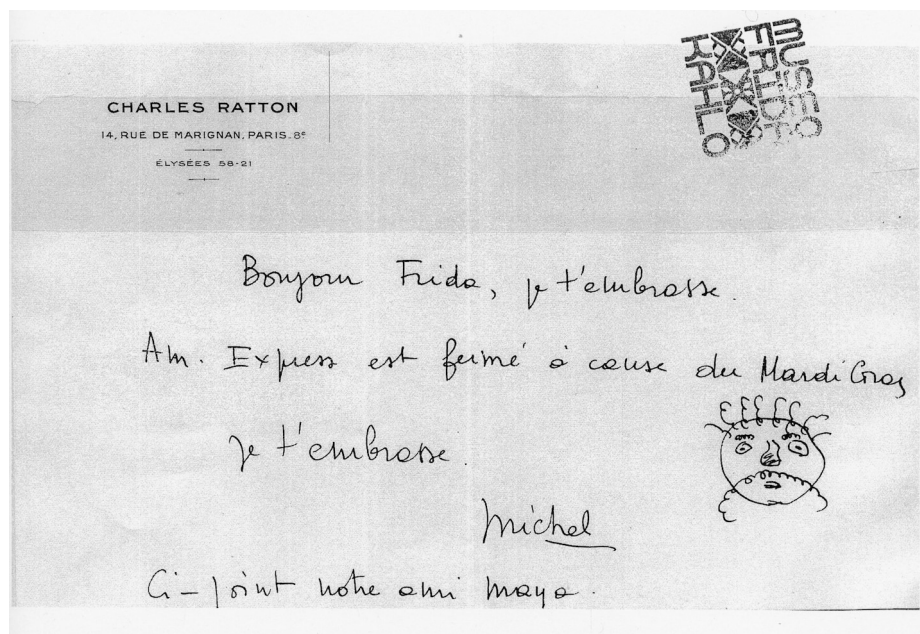 CHARLES RATTON
14, RUE DE MARIGNAN, PARIS_8e
ÉLYSÉES 58-21
MUSEO
FRIDA
KAHLO
Bonjour Frida, je t'embrasse.
Am. Express est fermé à cause du Mardi Gras
je t'embrasse.
Michel
Ci-joint notre ami maya.